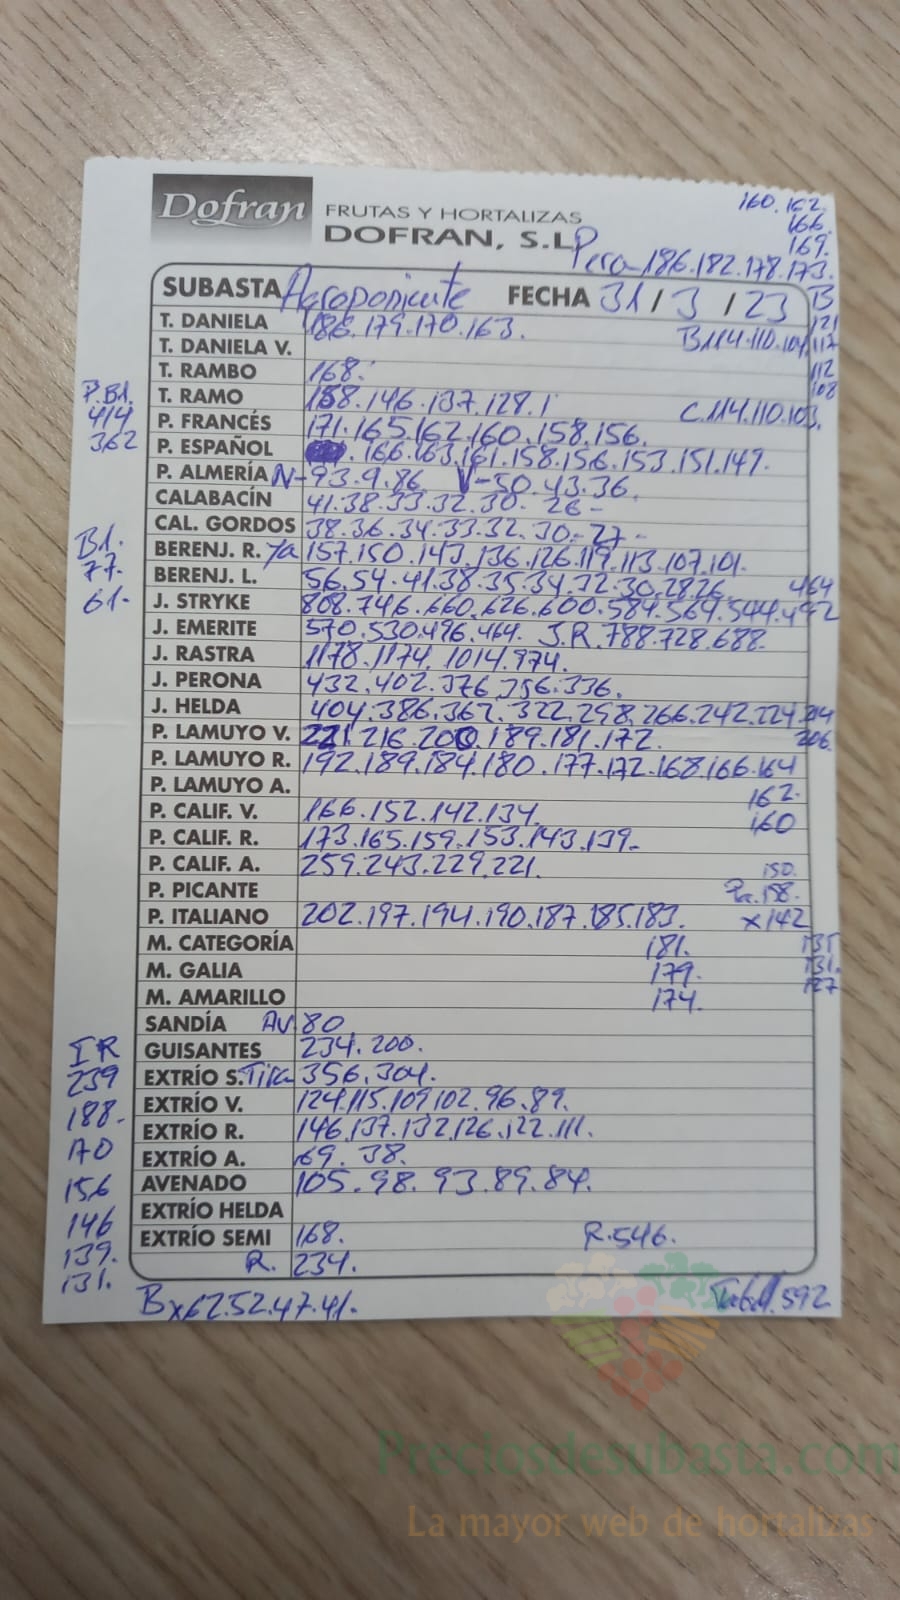 Dofran FRUTAS Y HORTALIZAS
DOFRAN, S.L.
160.162.
166.
169.
Pera-186.182.178.173.
SUBASTA Agroponiente FECHA 31/3/23 B
T. DANIELA 186.179.170.163. 121
T. DANIELA V. B114.110.104. 117
T. RAMBO 168. 112
108
T. RAMO 158.146.137.128.1 C.114.110.103.
P.B1.
414
362
P. FRANCÉS 171.165.162.160.158.156.
P. ESPAÑOL 166.163.161.158.156.153.151.149.
P. ALMERÍA N-93.9.86 V-50.43.36.
CALABACÍN 41.38.33.32.30. 26-
CAL. GORDOS 38.36.34.33.32.30-27-
B1.
77.
61.
BERENJ. R. Ya 157.150.143.136.126.119.113.107.101.
BERENJ. L. 56.54.41.38.35.34.32.30.28.26. 464
J. STRYKE 808.746.660.626.600.584.564.544.492
J. EMERITE 570.530.496.464. J.R.788.728.688.
J. RASTRA 1178.1174.1014.974.
J. PERONA 432.402.376.356.336.
J. HELDA 404.386.362.322.298.266.242.224.214
206.
P. LAMUYO V. 221.216.200.189.181.172.
P. LAMUYO R. 192.189.184.180.177.172.168.166.164
P. LAMUYO A. 162.
P. CALIF. V. 166.152.142.134. 160
P. CALIF. R. 173.165.159.153.143.139.
P. CALIF. A. 259.243.229.221. 150.
P. PICANTE Pa.158.
P. ITALIANO 202.197.194.190.187.185.183. x142
M. CATEGORÍA 181. 135
M. GALIA 179. 131.
M. AMARILLO 174. 127
SANDÍA AV. 80
GUISANTES 234.200.
EXTRÍO S. Tira 356.304.
EXTRÍO V. 124.115.109.102.96.89.
EXTRÍO R. 146.137.132.126.122.111.
EXTRÍO A. 69.38.
AVENADO 105.98.93.89.84.
EXTRÍO HELDA
EXTRÍO SEMI 168. R.546.
R. 234.
IR
239
188.
170
156
146
139.
131.
Bx62.52.47.41. 592
Preciosdesubasta.com
La mayor web de hortalizas